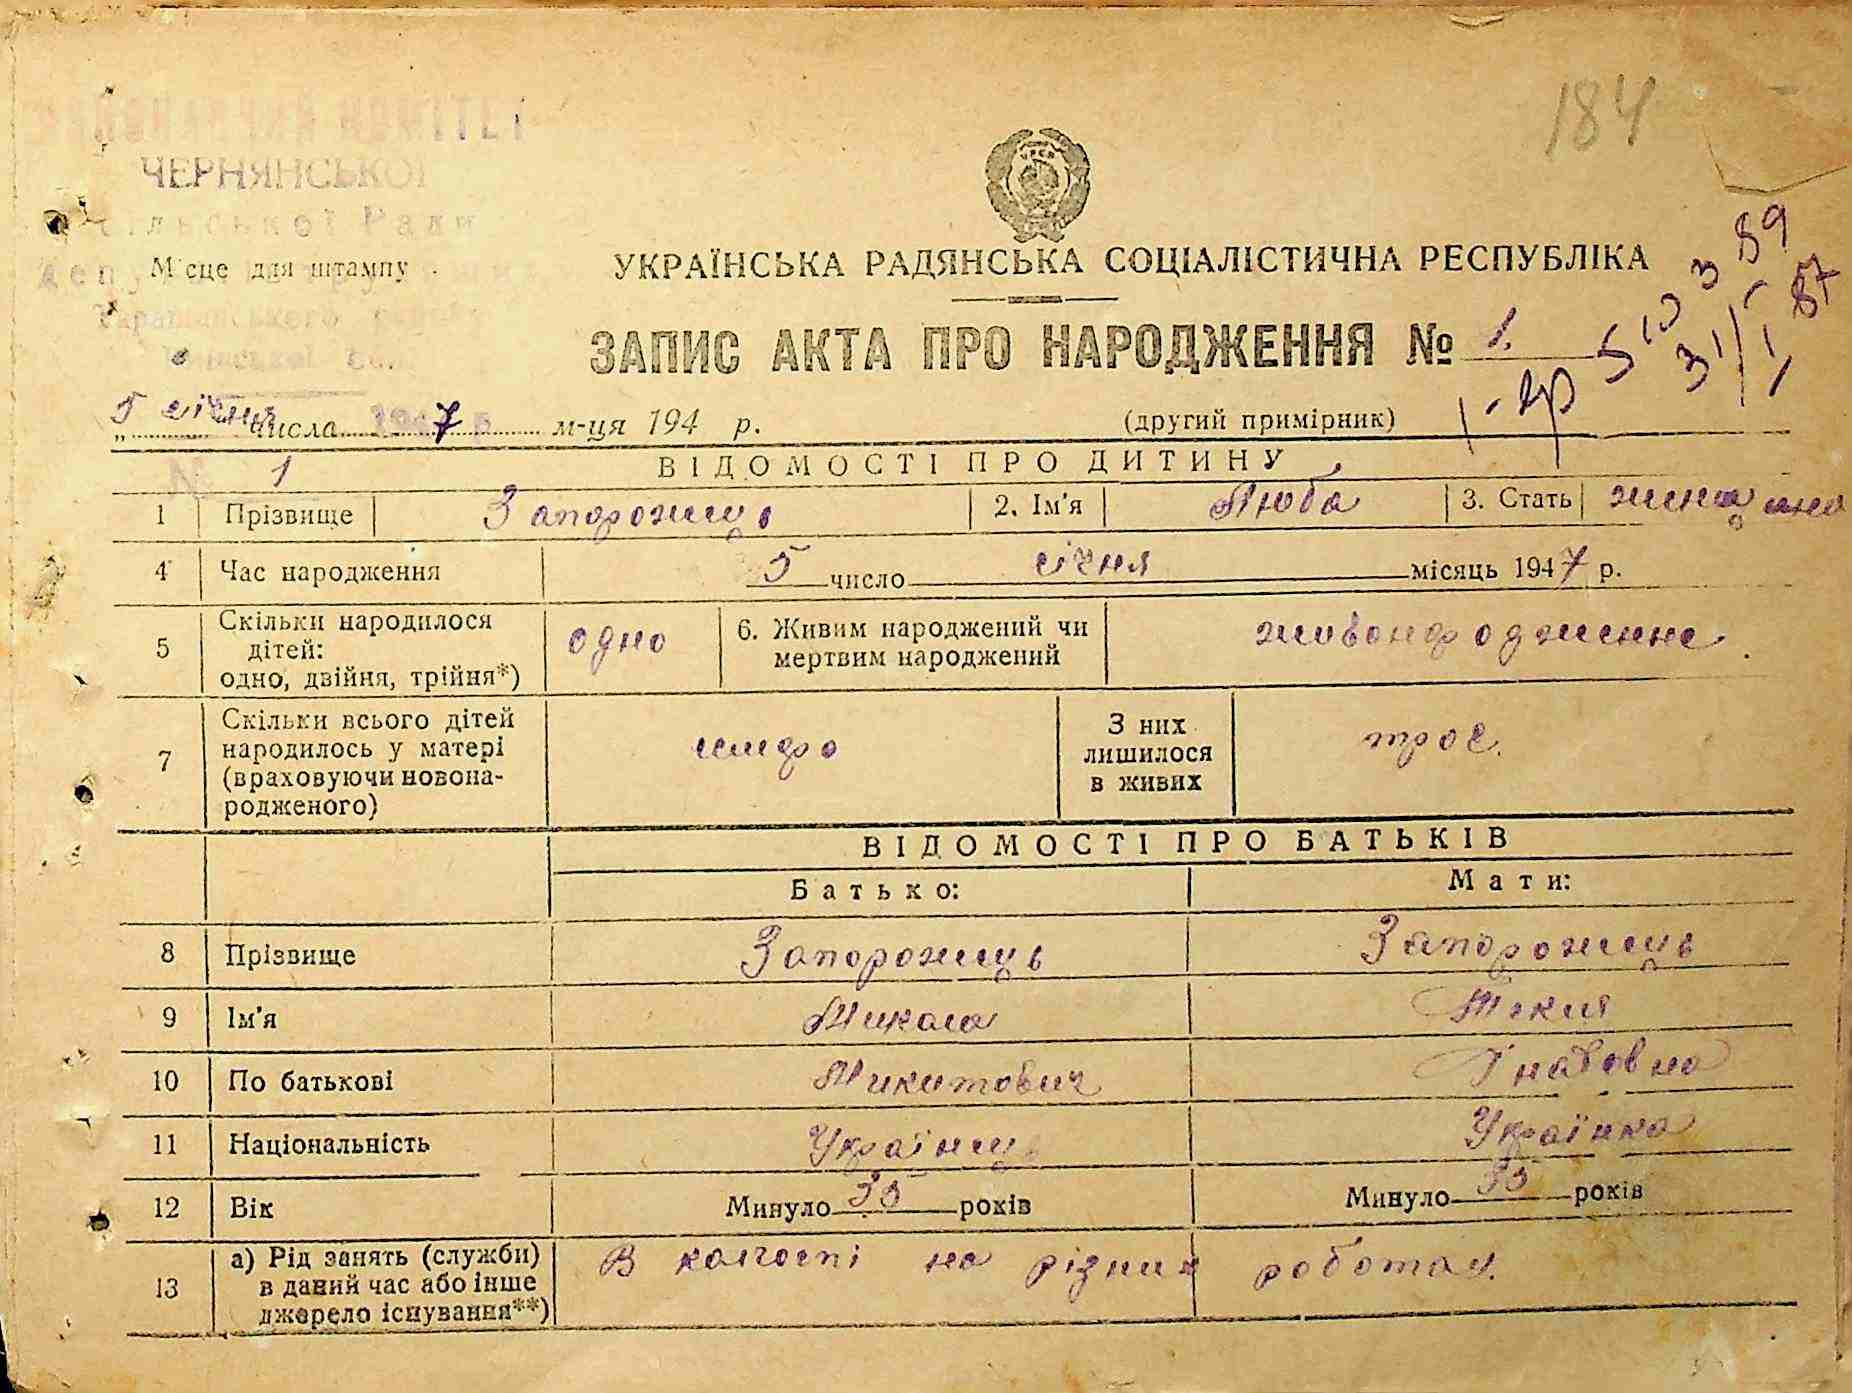 184
ВИКОНАВЧИЙ КОМІТЕТ
ЧЕРНЯНСЬКОЇ
Сільської Ради
Місце для штампу
УКРАЇНСЬКА РАДЯНСЬКА СОЦІАЛІСТИЧНА РЕСПУБЛІКА
ЗАПИС АКТА ПРО НАРОДЖЕННЯ № 1.
5 січня числа 1947 м-ця 194 р.
(другий примірник)
№ 1
ВІДОМОСТІ ПРО ДИТИНУ
1 Прізвище Запорожець 2. Ім'я Люба 3. Стать
4 Час народження 5 число січня місяць 1947 р.
5 Скільки народилося дітей: одно, двійня, трійня*) одно 6. Живим народжений чи мертвим народжений живонароджене
7 Скільки всього дітей народилось у матері (враховуючи новонародженого) З них лишилося в живих троє.
ВІДОМОСТІ ПРО БАТЬКІВ
Батько: Мати:
8 Прізвище Запорожець Запорожець
9 Ім'я Микола Текля
10 По батькові Микитович Гнатовна
11 Національність Українець Українка
12 Вік Минуло 35 років Минуло 35 років
13 а) Рід занять (служби) в даний час або інше джерело існування**) В колгоспі на різних роботах.